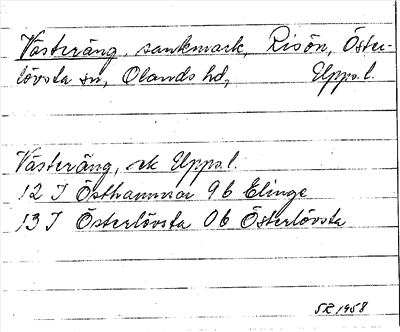 Västeräng, sankmark, Risön, Öster-
lövsta sn, Olands hd, Upps.l.
Västeräng, ek Upps.l.
12 I Östhammar 9b Elinge
13 I Österlövsta 0b Österlövsta
SR 1958